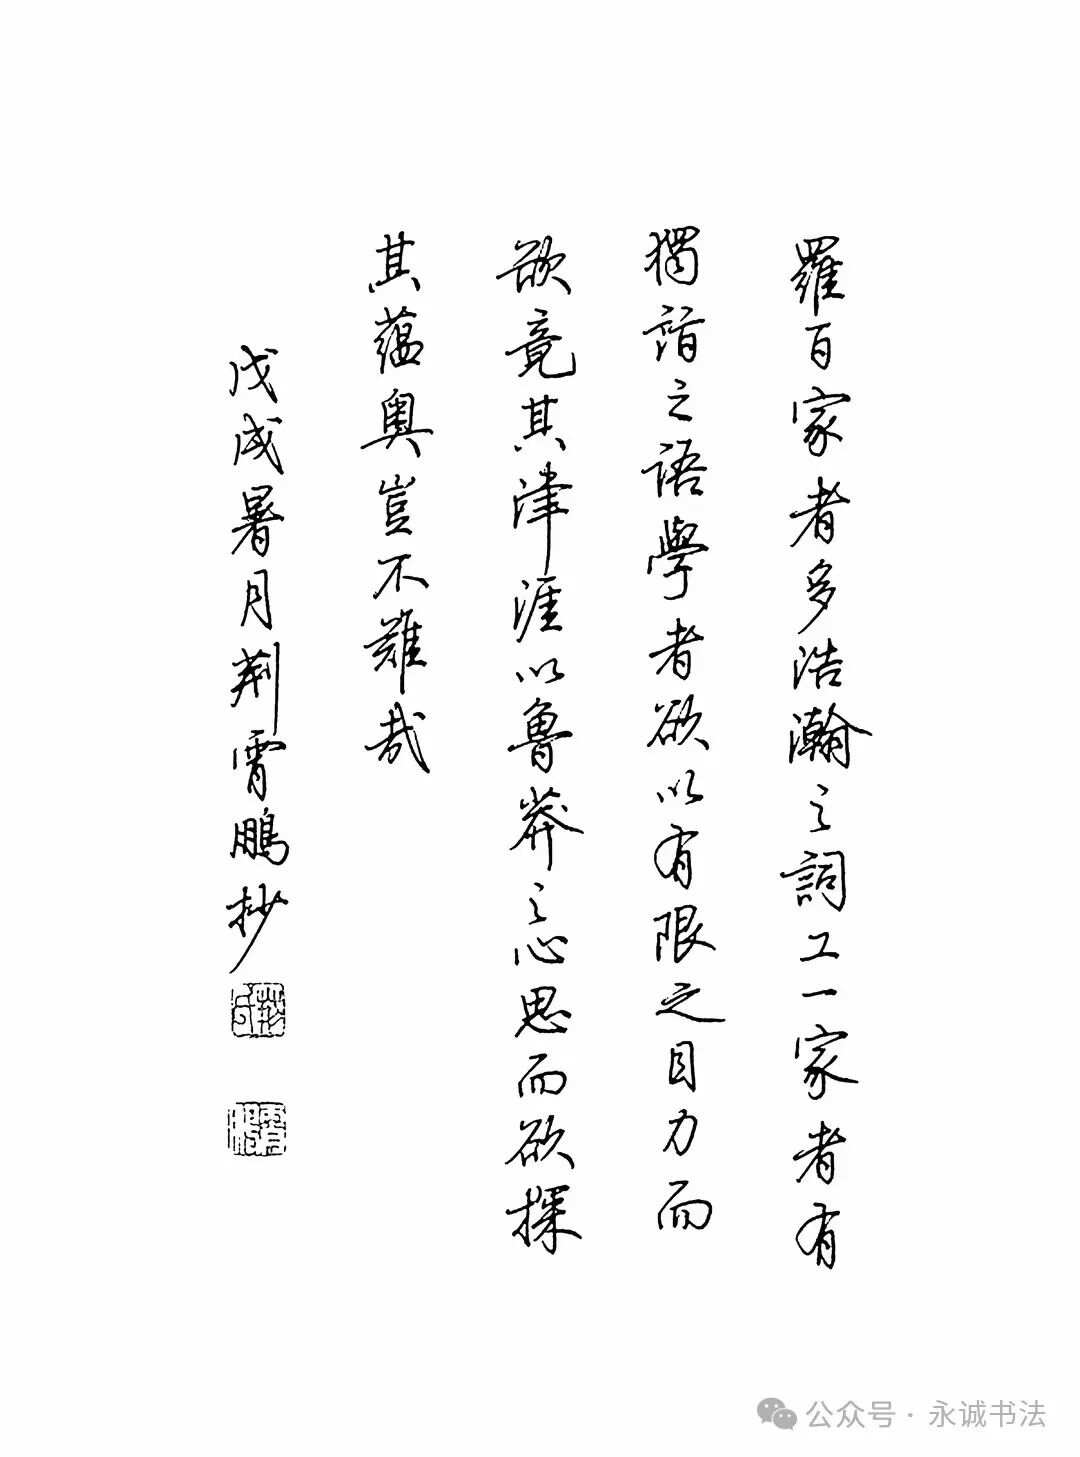 羅百家者多浩瀚之詞工一家者有
獨詣之語學者欲以有限之目力而
欲竟其津涯以魯莽之心思而欲探
其蘊奧豈不難哉
戊戌暑月荆霄鵬抄
公众号·永诚书法